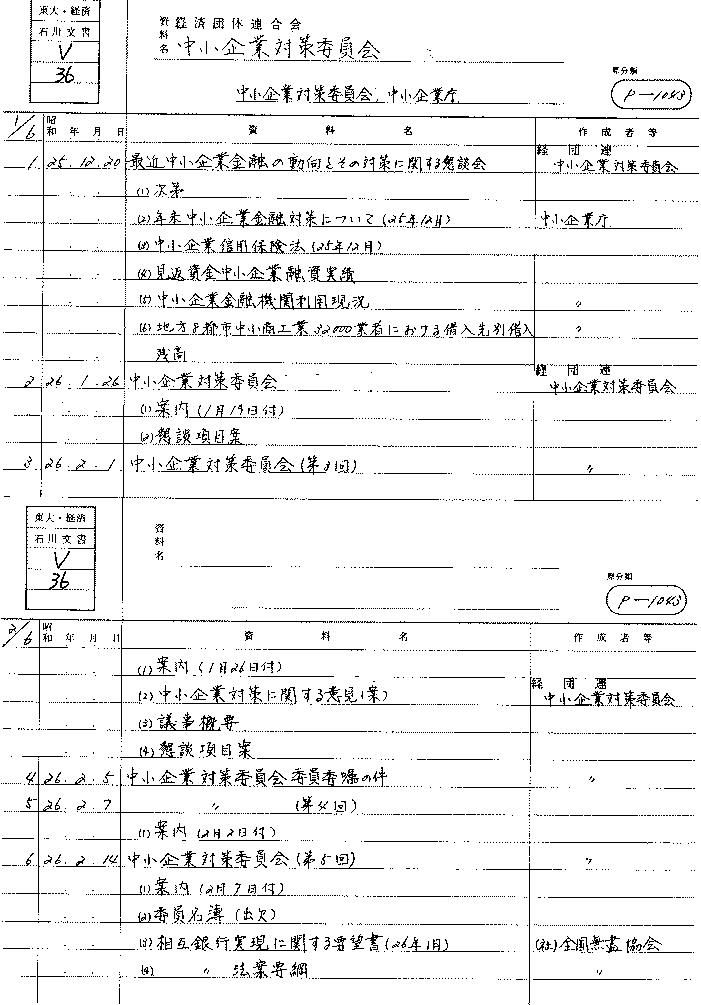 東大・経済
石川文書
V
36
資料名 経済団体連合会
中小企業対策委員会
中小企業対策委員会、中小企業庁
原分類
P-1043
1/6 昭和 年 月 日 資 料 名 作 成 者 等
1 25.12.20 最近中小企業金融の動向とその対策に関する懇談会 経団連 中小企業対策委員会
(1) 次第
(2) 年末中小企業金融対策について(25年12月) 中小企業庁
(3) 中小企業信用保険法(25年12月)
(4) 見返資金中小企業融資実績
(5) 中小企業金融機関利用現況 〃
(6) 地方8都市中小商工業32000業者における借入先別借入 〃
残高
2 26.1.26 中小企業対策委員会 経団連 中小企業対策委員会
(1) 案内(1月19日付)
(2) 懇談項目案
3 26.2.1 中小企業対策委員会(第3回) 〃
東大・経済
石川文書
V
36
資料名
原分類
P-1043
2/6 昭和 年 月 日 資 料 名 作 成 者 等
(1) 案内(1月26日付)
(2) 中小企業対策に関する意見(案) 経団連 中小企業対策委員会
(3) 議事概要
(4) 懇談項目案
4 26.2.5 中小企業対策委員会委員委嘱の件 〃
5 26.2.7 〃 (第4回)
(1) 案内(2月2日付)
6 26.2.14 中小企業対策委員会(第5回) 〃
(1) 案内(2月7日付)
(2) 委員名簿(出欠)
(3) 相互銀行実現に関する要望書(26年1月) (社)全国無尽協会
(4) 〃 法案要綱 〃